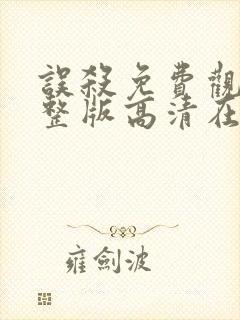 誤殺免費觀
整版高清在
雍劍波